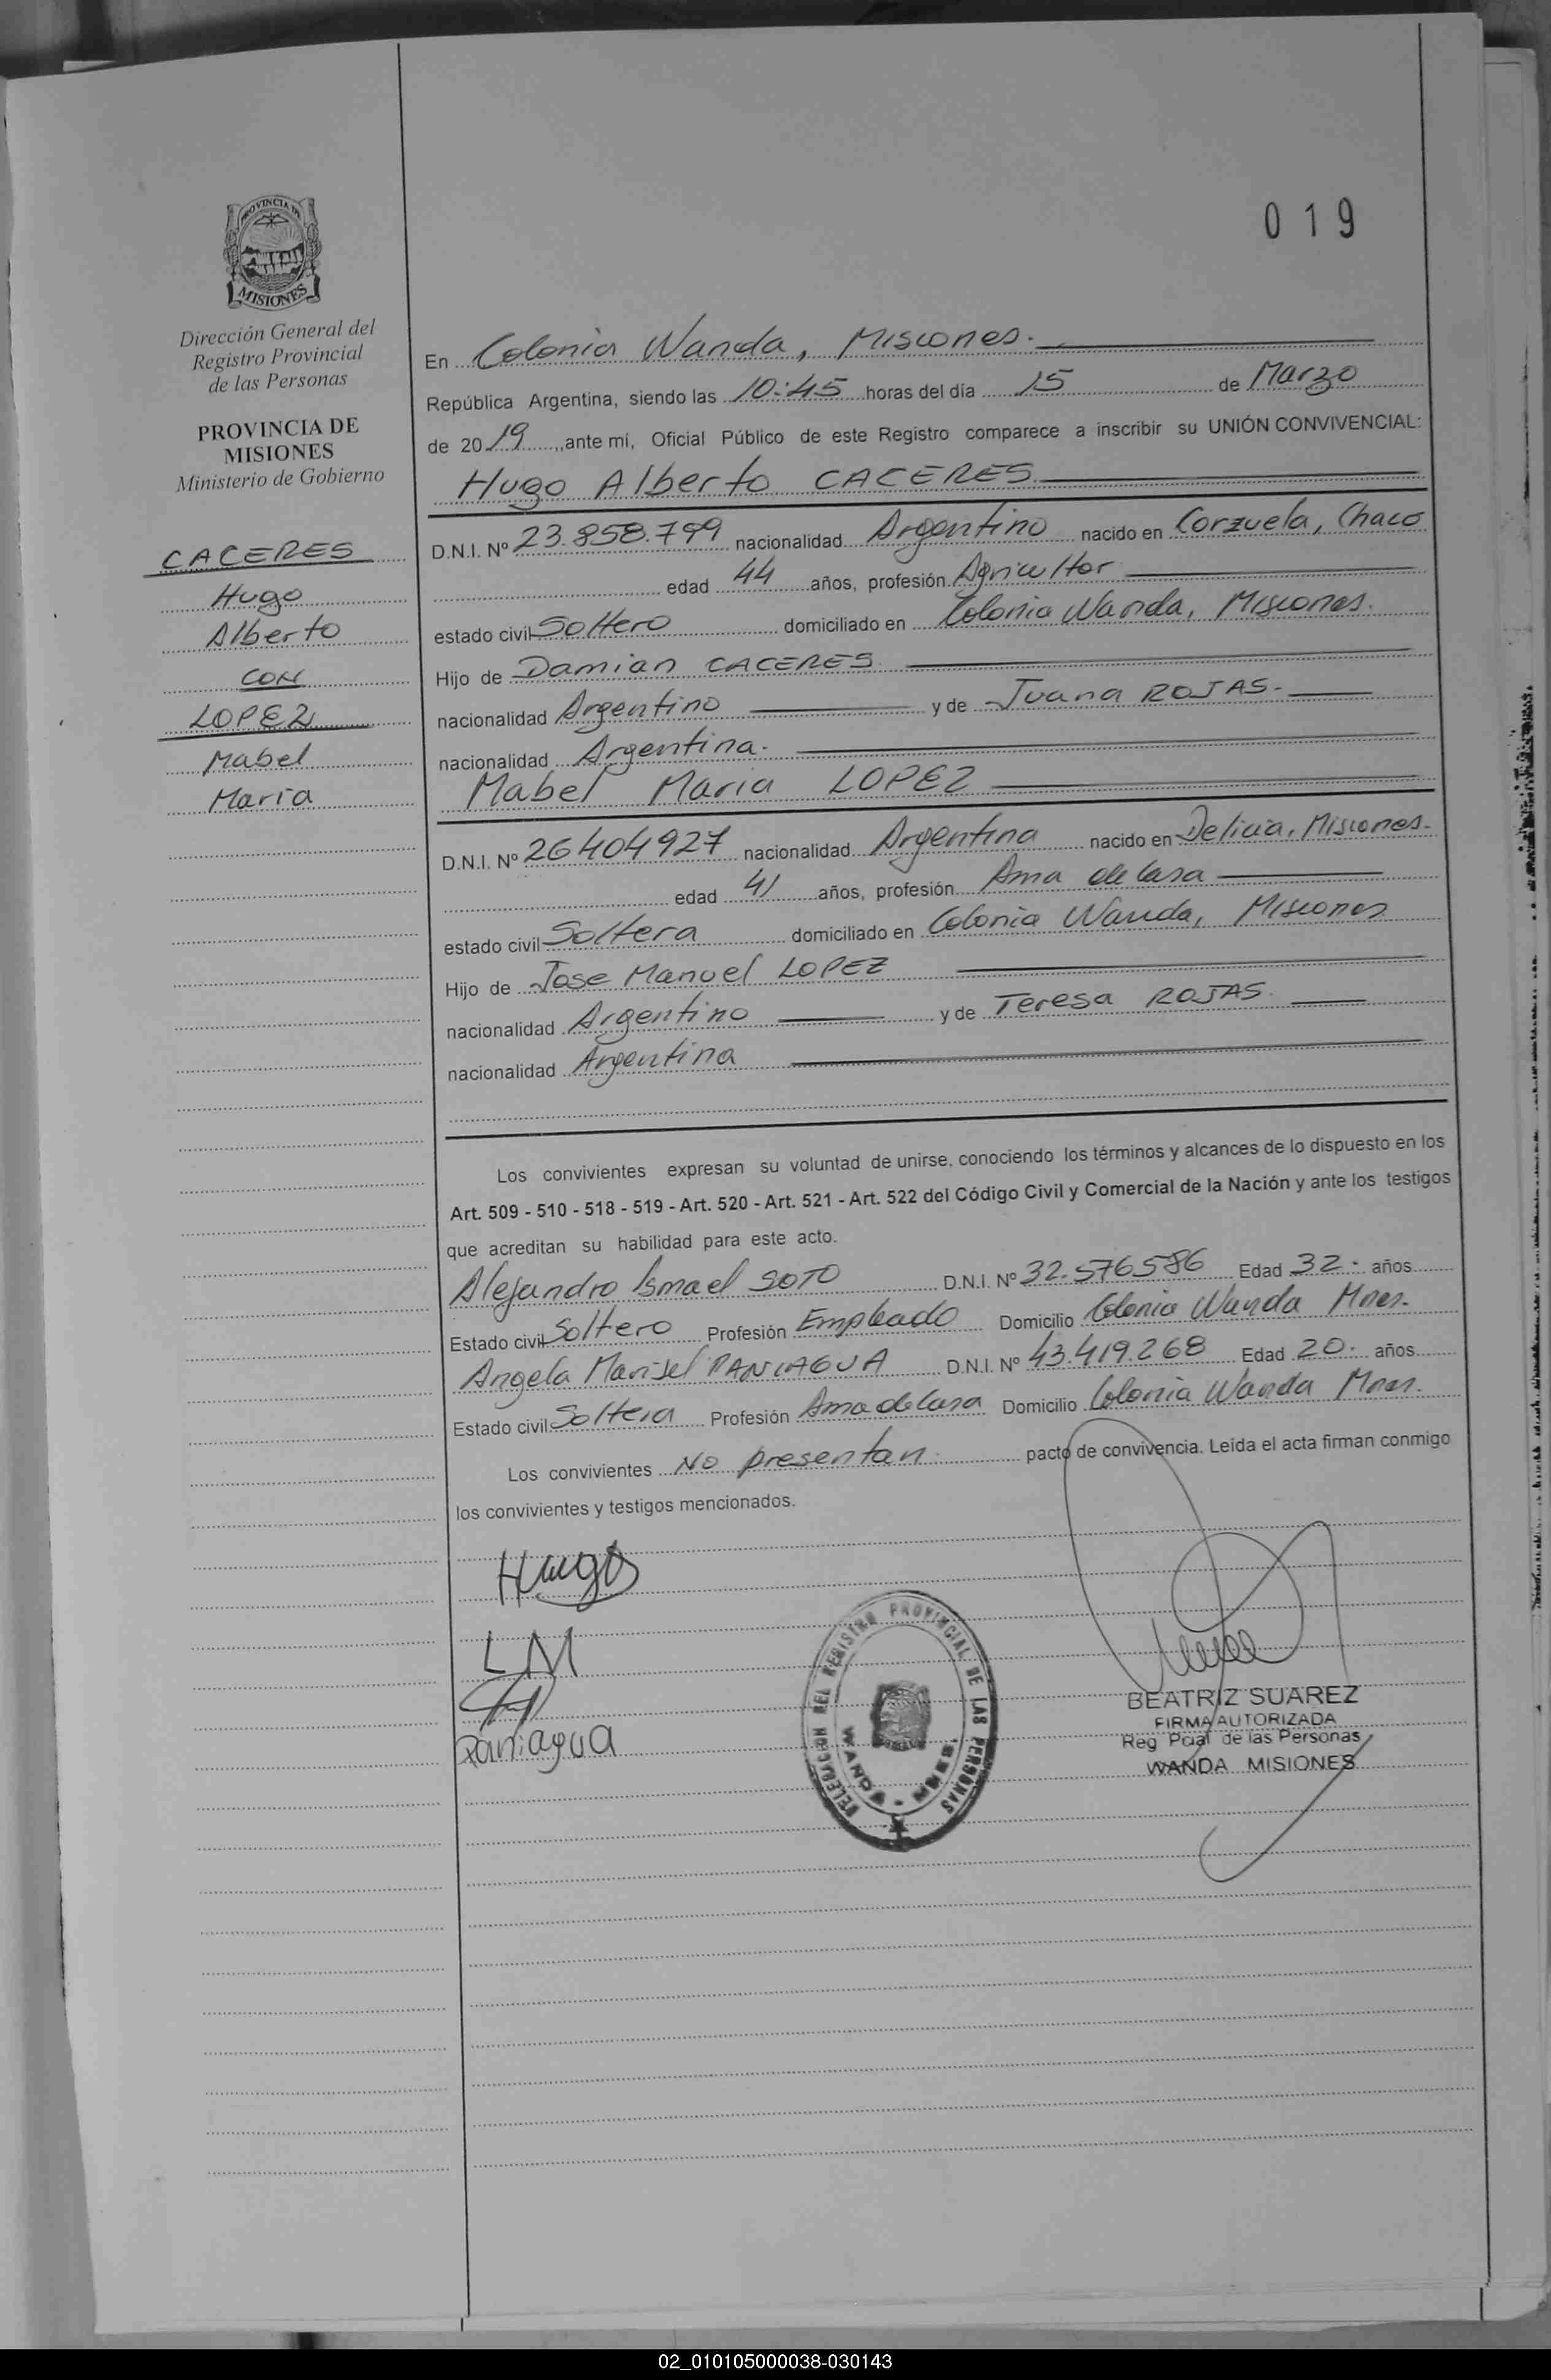 019
PROVINCIA DE
MISIONES
Dirección General del
Registro Provincial
de las Personas
PROVINCIA DE
MISIONES
Ministerio de Gobierno
CACERES
Hugo
Alberto
CON
LOPEZ
Mabel
María
En Colonia Wanda, Misiones.
República Argentina, siendo las 10:45 horas del día 15 de Marzo
de 2019, ante mí, Oficial Público de este Registro comparece a inscribir su UNIÓN CONVIVENCIAL:
Hugo Alberto CACERES
D.N.I. Nº 23.858.799 nacionalidad Argentino nacido en Corzuela, Chaco
edad 44 años, profesión Agricultor
estado civil Soltero domiciliado en Colonia Wanda, Misiones.
Hijo de Damian CACERES
nacionalidad Argentino y de Juana ROJAS.
nacionalidad Argentina.
Mabel Maria LOPEZ
D.N.I. Nº 26404927 nacionalidad Argentina nacido en Delicia, Misiones.
edad 41 años, profesión Ama de Casa
estado civil Soltera domiciliado en Colonia Wanda, Misiones
Hijo de Jose Manuel LOPEZ
nacionalidad Argentino y de Teresa ROJAS.
nacionalidad Argentina
Los convivientes expresan su voluntad de unirse, conociendo los términos y alcances de lo dispuesto en los
Art. 509 - 510 - 518 - 519 - Art. 520 - Art. 521 - Art. 522 del Código Civil y Comercial de la Nación y ante los testigos
que acreditan su habilidad para este acto.
Alejandro Ismael SOTO D.N.I. Nº 32.576586 Edad 32. años
Estado civil Soltero Profesión Empleado Domicilio Colonia Wanda Mnes.
Angela Marisel PANIAGUA D.N.I. Nº 43.419.268 Edad 20. años
Estado civil Soltera Profesión Ama de Casa Domicilio Colonia Wanda Mnes.
Los convivientes No presentan pacto de convivencia. Leída el acta firman conmigo
los convivientes y testigos mencionados.
Hugo
LM
Paniagua
DEL REGISTRO PROVINCIAL DE LAS PERSONAS
WANDA - MNES.
BEATRIZ SUAREZ
FIRMA AUTORIZADA
Reg Pcial de las Personas
WANDA MISIONES
02_010105000038-030143